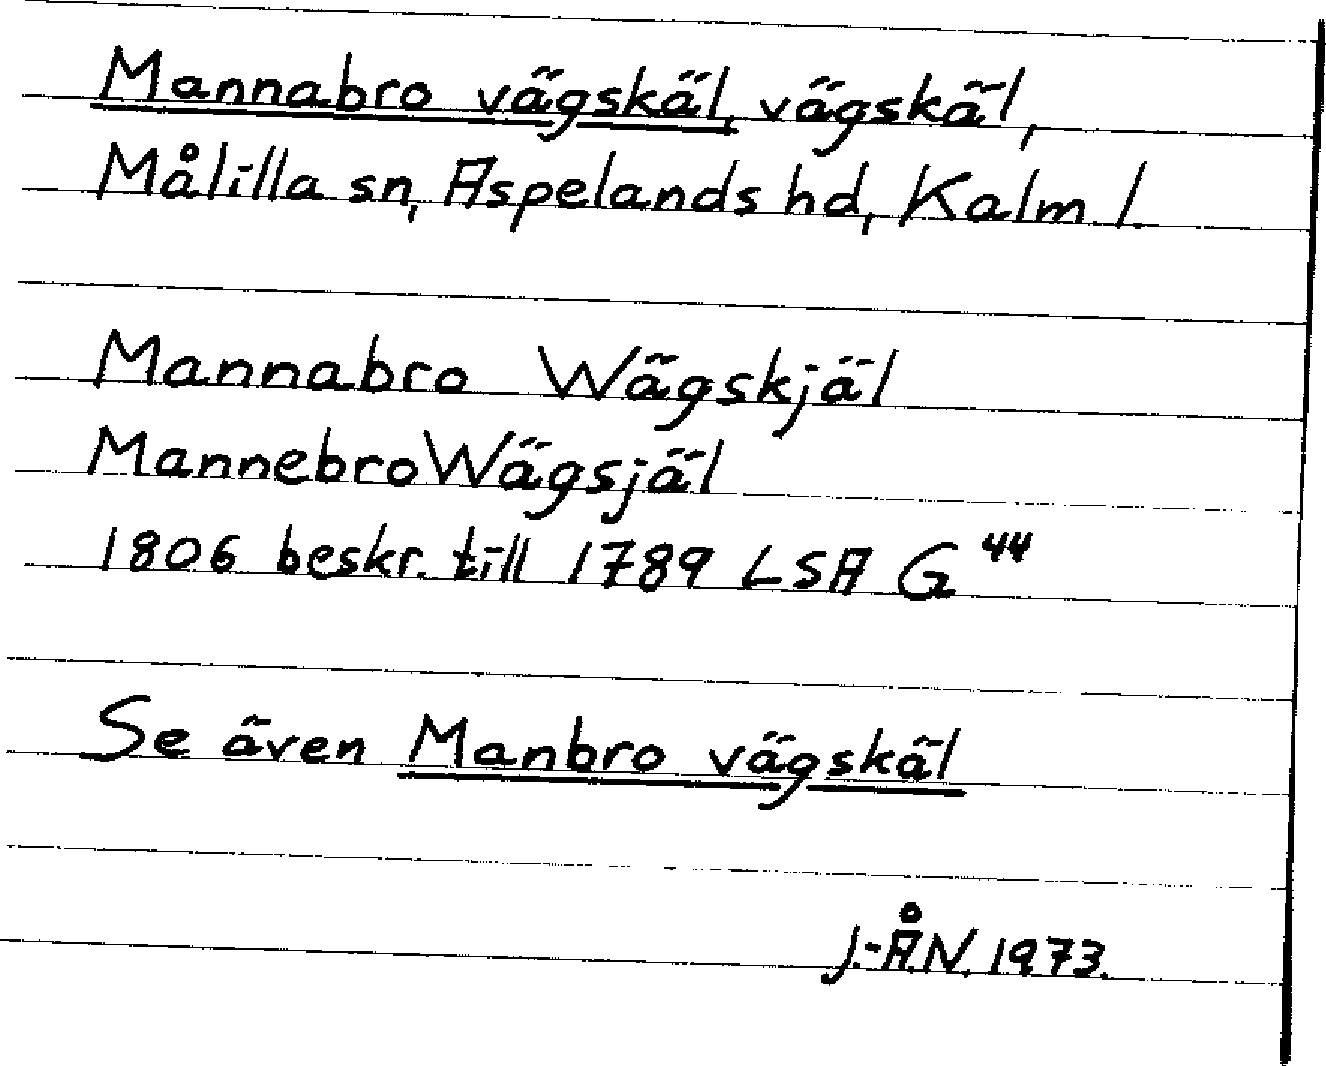 Mannabro vägskäl, vägskäl,
Målilla sn, Aspelands hd, Kalm. l.
Mannabro Wägskjäl
Mannebro Wägsjäl
1806 beskr. till 1789 LSA G 44
Se även Manbro vägskäl
J.-Å.N. 1973.